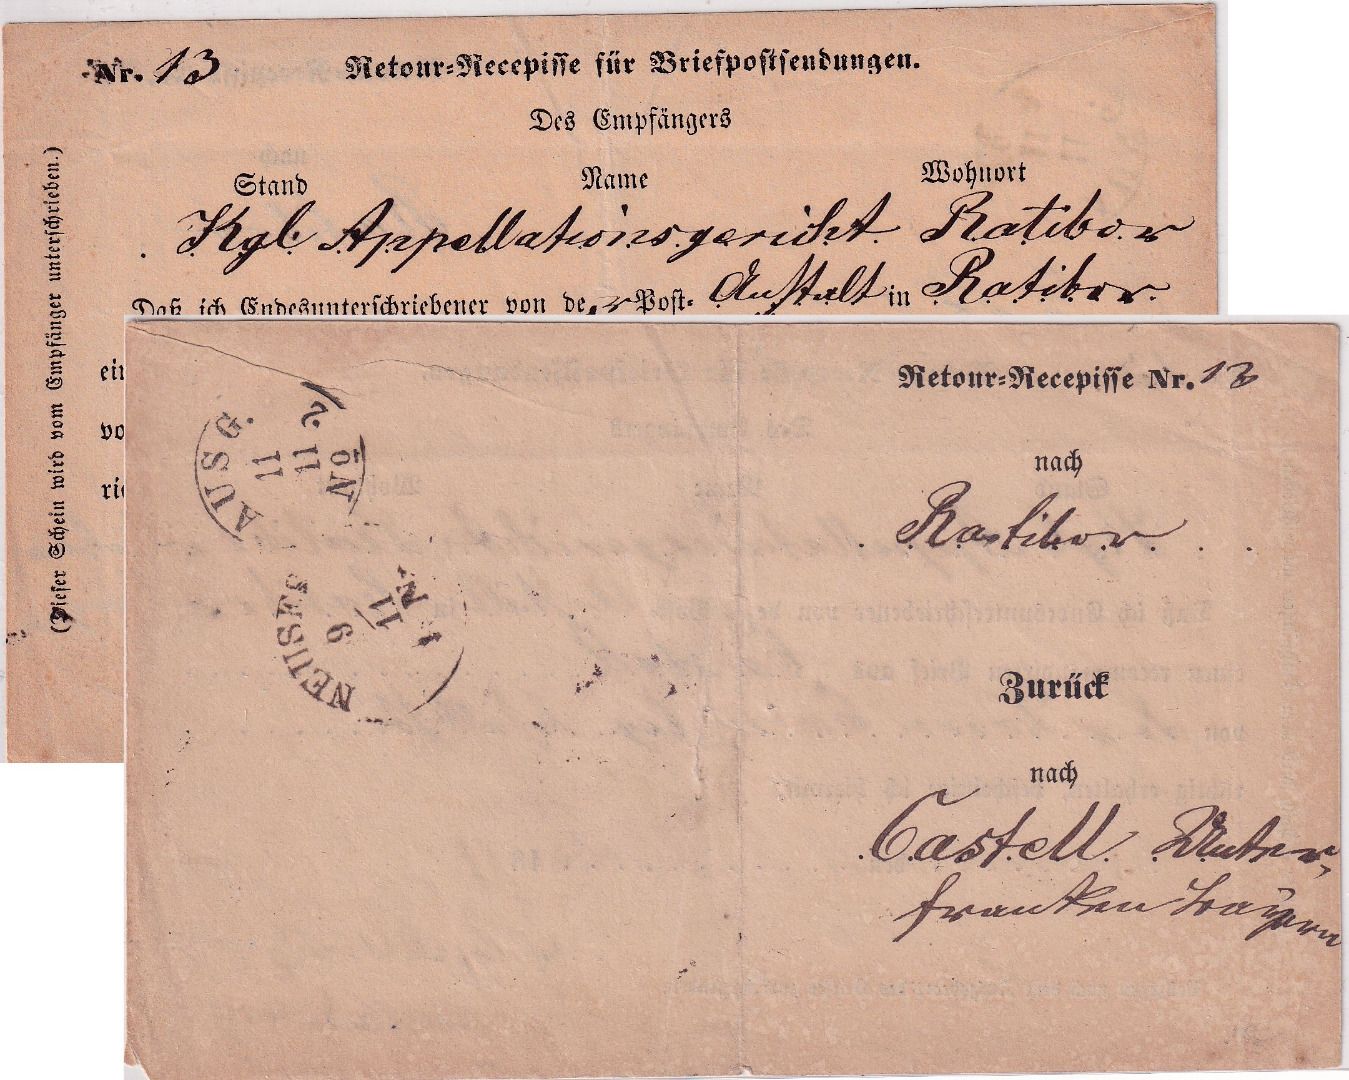 Nr. 13 Retour-Recepisse für Briefpostsendungen.
Des Empfängers
Stand Name Wohnort
Kgl. Appellationsgericht Ratibor
Daß ich Endesunterschriebener von der Post-Anstalt in Ratibor.
ein
vo
ric
(Dieser Schein wird vom Empfänger unterschrieben.)
Retour-Recepisse Nr. 13
nach
Ratibor.
Zurück
nach
Castell Unter-
franken Bayern
AUSG.
11
11
NEUSES
9
11
N